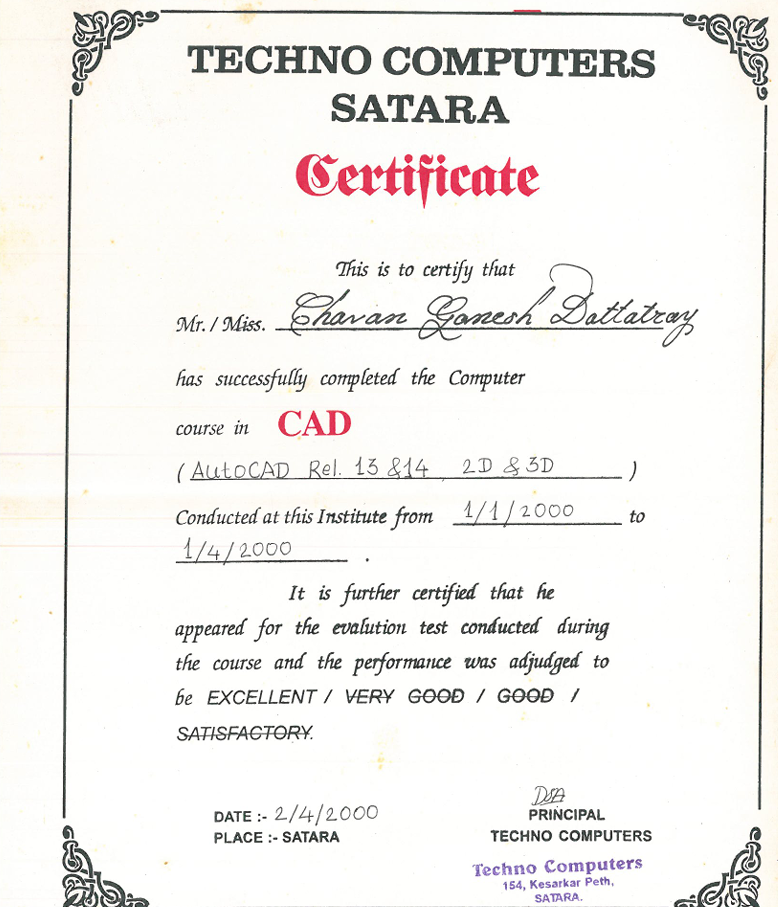 TECHNO COMPUTERS
SATARA
Certificate
This is to certify that
Mr. / Miss. Chavan Ganesh Dattatray
has successfully completed the Computer
course in CAD
( AutoCAD Rel. 13 & 14 2D & 3D )
Conducted at this Institute from 1/1/2000 to
1/4/2000 .
It is further certified that he
appeared for the evalution test conducted during
the course and the performance was adjudged to
be EXCELLENT / VERY GOOD / GOOD /
SATISFACTORY.
DATE :- 2/4/2000
PLACE :- SATARA
PRINCIPAL
TECHNO COMPUTERS
Techno Computers
154, Kesarkar Peth,
SATARA.